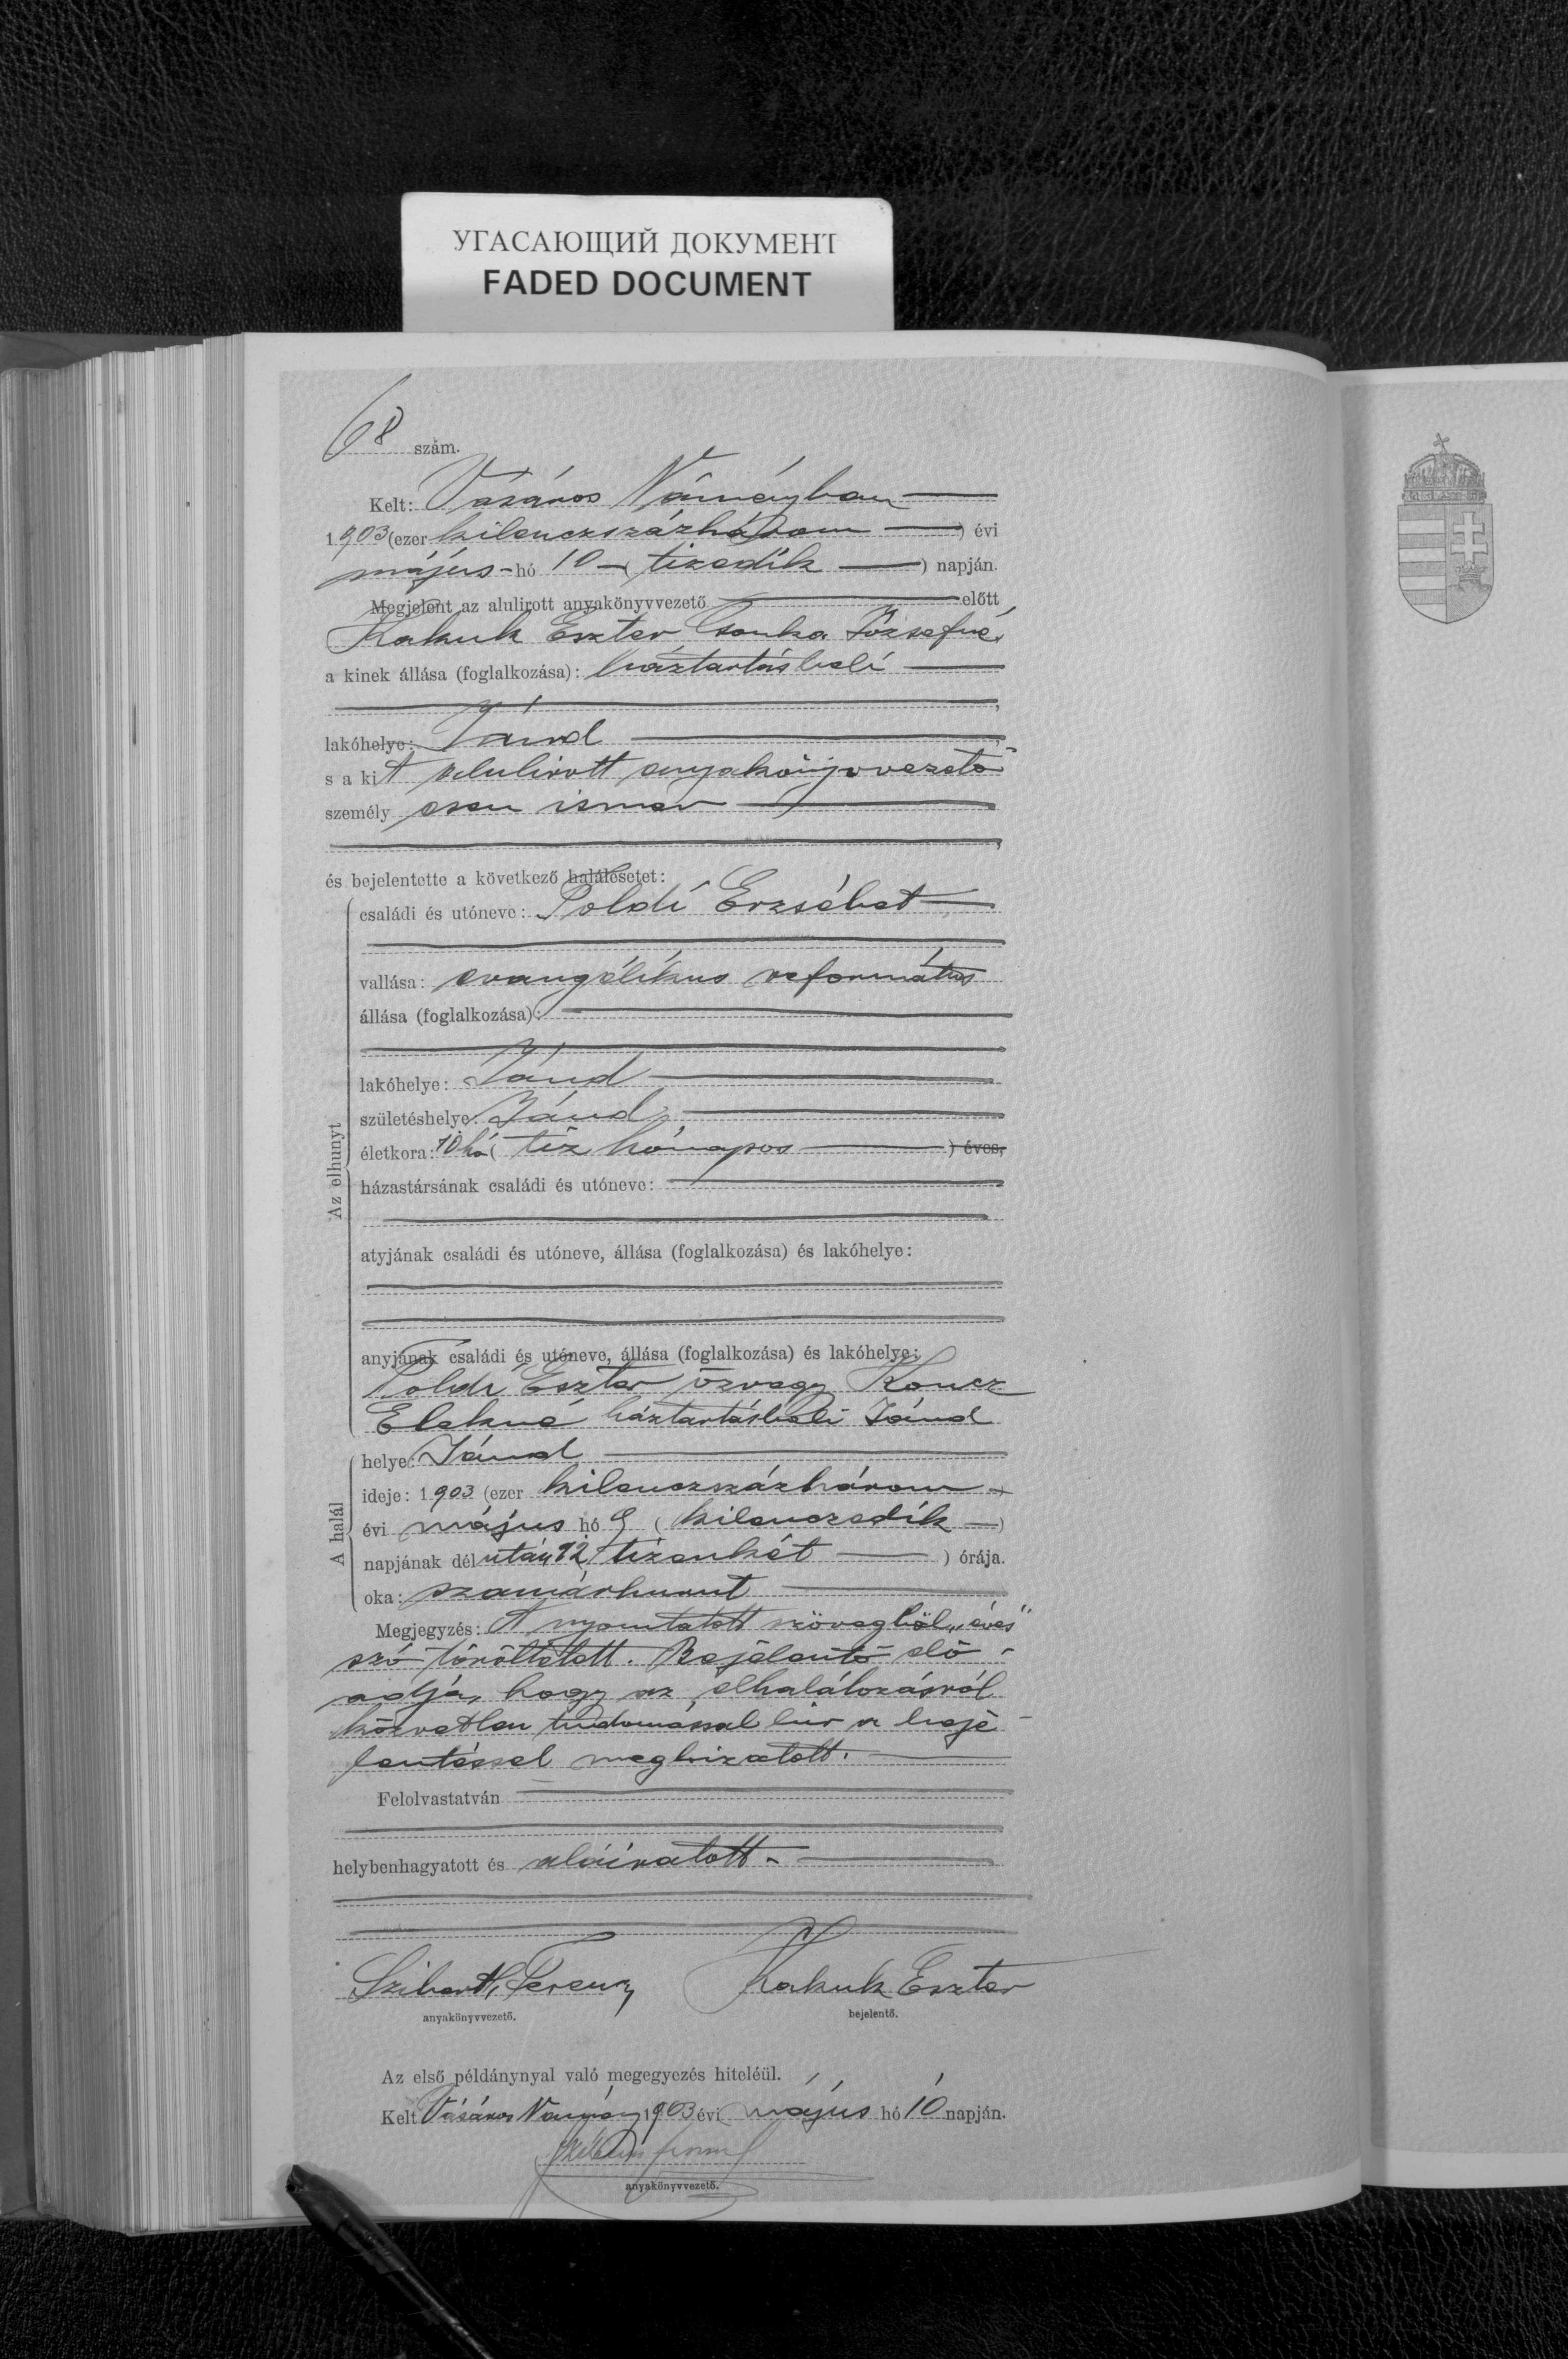 УГАСАЮЩИЙ ДОКУМЕНТ
FADED DOCUMENT
68 szám.
Kelt: Vásáros Naményban
1903 (ezer kilenczszázhárom ) évi
május hó 10 ( tizedik ) napján.
Megjelent az alulirott anyakönyvvezető előtt
Kakuk Eszter Csonka Józsefné,
a kinek állása (foglalkozása): háztartásbeli
lakóhelye: Jánd
s a kit alulirott anyakönyvvezető
személyesen ismer
és bejelentette a következő halálesetet:
Az elhunyt
családi és utóneve: Poldi Erzsébet
vallása: evangélikus református
állása (foglalkozása):
lakóhelye: Jánd
születéshelye: Jánd
életkora: 10 hó ( tíz hónapos ) éves,
házastársának családi és utóneve:
atyjának családi és utóneve, állása (foglalkozása) és lakóhelye:
anyjának családi és utóneve, állása (foglalkozása) és lakóhelye:
Poldi Eszter özvegy Koncz
Elekné háztartásbeli Jánd
A halál
helye: Jánd
ideje: 1903 (ezer kilenczszázhárom )
évi május hó 9 ( kilenczedik )
napjának délután 12 ( tizenkét ) órája.
oka: szamárhurut
Megjegyzés: A nyomtatott szövegből „éves"
szó töröltetett. Bejelentő elő-
adja, hogy az elhalálozásról
közvetlen tudomással bír a beje-
lentéssel megbizatott.
Felolvastatván
helybenhagyatott és aláiratott.
Ferencz Kakuk Eszter
anyakönyvvezető. bejelentő.
Az első példánynyal való megegyezés hiteléül.
Kelt Vásáros Namény 1903 évi május hó 10 napján.
anyakönyvvezető.